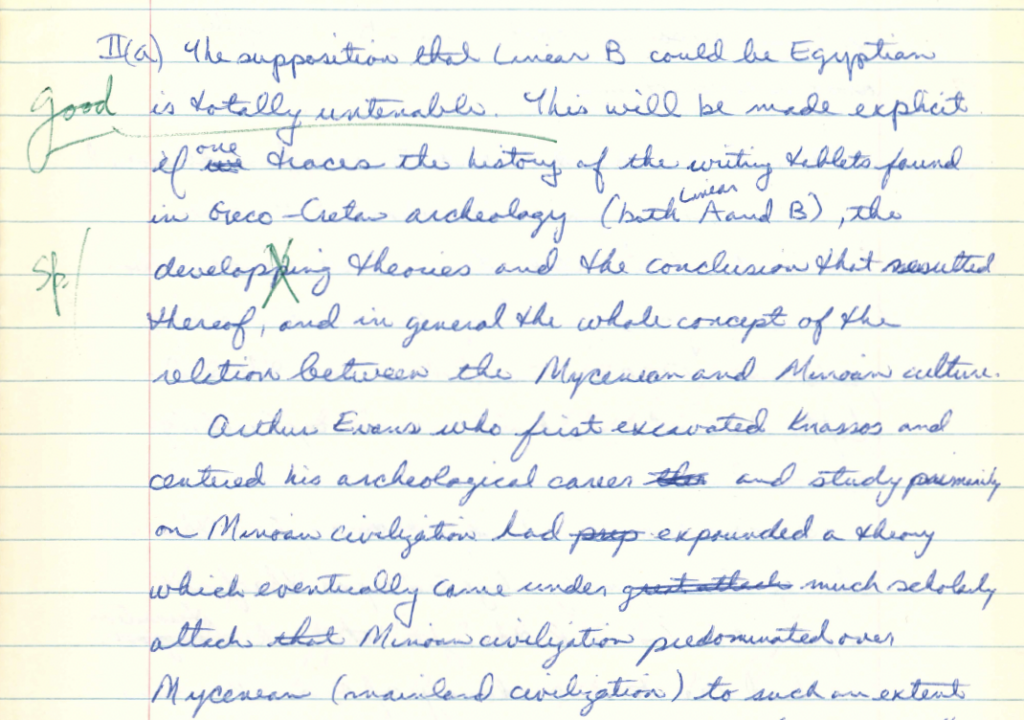 II(a) The supposition that Linear B could be Egyptian
Good is totally untenable. This will be made explicit
if one traces the history of the writing tablets found
in Greco-Cretan archeology (both Linear A and B), the
Sp/ developping theories and the conclusion that resulted
thereof, and in general the whole concept of the
relation between the Mycenean and Minoan culture.
Arthur Evans who first excavated Knossos and
centered his archeological career and study
on Minoan civilization had prep expounded a theory
which eventually came under great attack much scholarly
attack that Minoan civilization predominated over
Mycenean (mainland civilization) to such an extent